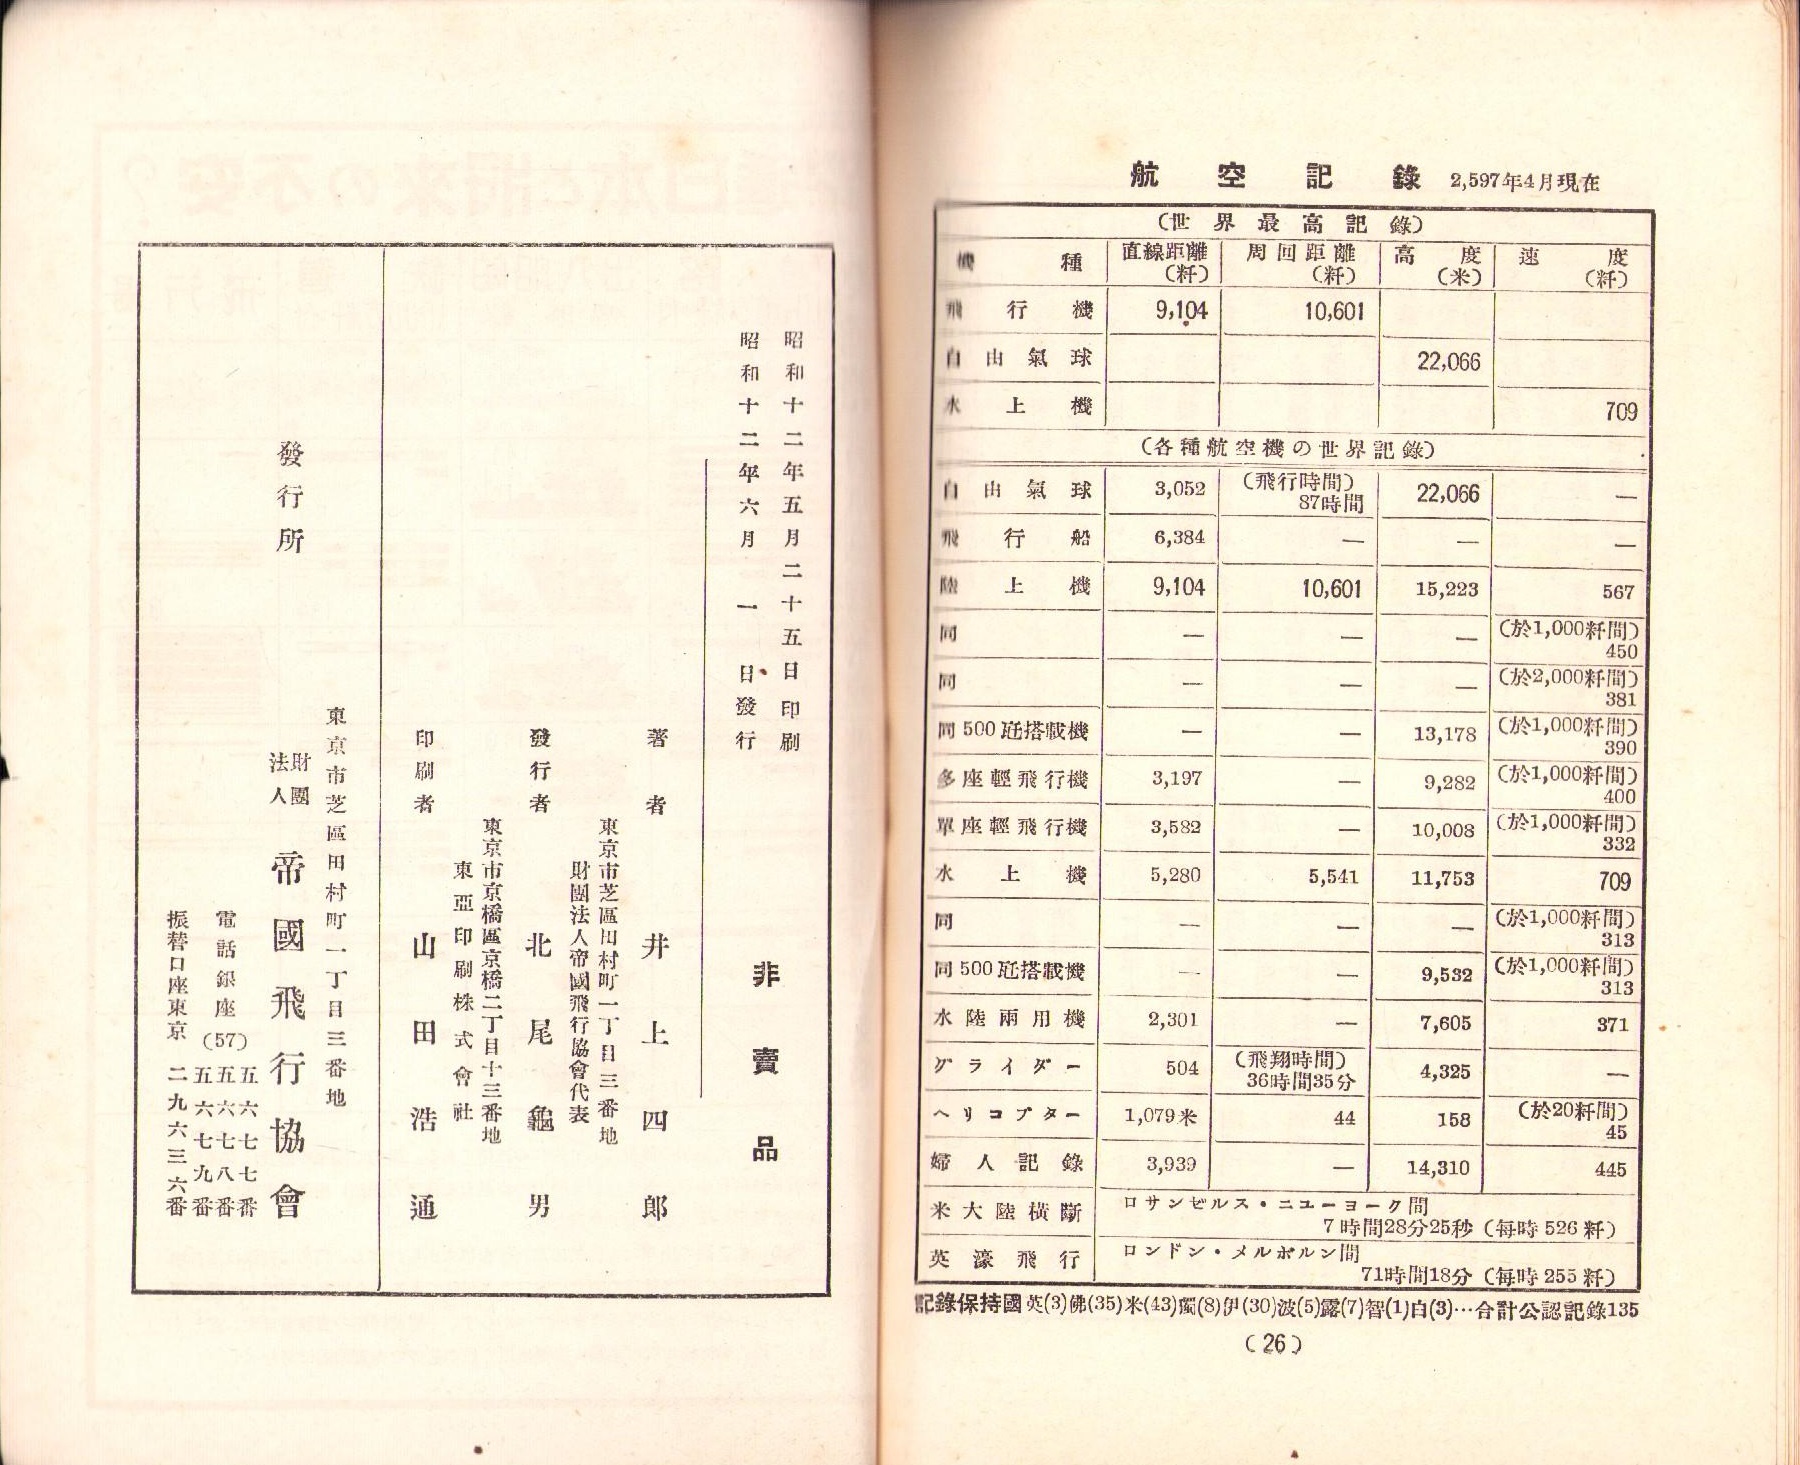 航空記錄 2,597年4月現在
(世界最高記錄)
機種 直線距離(粁) 周回距離(粁) 高度(米) 速度(粁)
飛行機 9,104 10,601
自由氣球 22,066
水上機 709
(各種航空機の世界記錄)
自由氣球 3,052 (飛行時間)87時間 22,066 —
飛行船 6,384 — — —
陸上機 9,104 10,601 15,223 567
同 — — — (於1,000粁間)450
同 — — — (於2,000粁間)381
同500瓩搭載機 — — 13,178 (於1,000粁間)390
多座輕飛行機 3,197 — 9,282 (於1,000粁間)400
單座輕飛行機 3,582 — 10,008 (於1,000粁間)332
水上機 5,280 5,541 11,753 709
同 — — — (於1,000粁間)313
同500瓩搭載機 — — 9,532 (於1,000粁間)313
水陸兩用機 2,301 — 7,605 371
グライダー 504 (飛翔時間)36時間35分 4,325 —
ヘリコプター 1,079米 44 158 (於20粁間)45
婦人記錄 3,939 — 14,310 445
米大陸橫斷 ロサンゼルス・ニューヨーク間
7時間28分25秒(每時526粁)
英濠飛行 ロンドン・メルボルン間
71時間18分(每時255粁)
記錄保持國 英(3)佛(35)米(43)獨(8)伊(30)波(5)露(7)智(1)白(3)…合計公認記錄135
(26)
昭和十二年五月二十五日印刷
昭和十二年六月一日發行
非賣品
著者 井上四郎
東京市芝區田村町一丁目三番地
財團法人帝國飛行協會代表
發行者 北尾龜男
東京市京橋區京橋二丁目十三番地
東亞印刷株式會社
印刷者 山田浩通
東京市芝區田村町一丁目三番地
發行所 財團法人 帝國飛行協會
電話銀座(57)五六七七番
五六七八番
五六七九番
振替口座東京二九六三六番